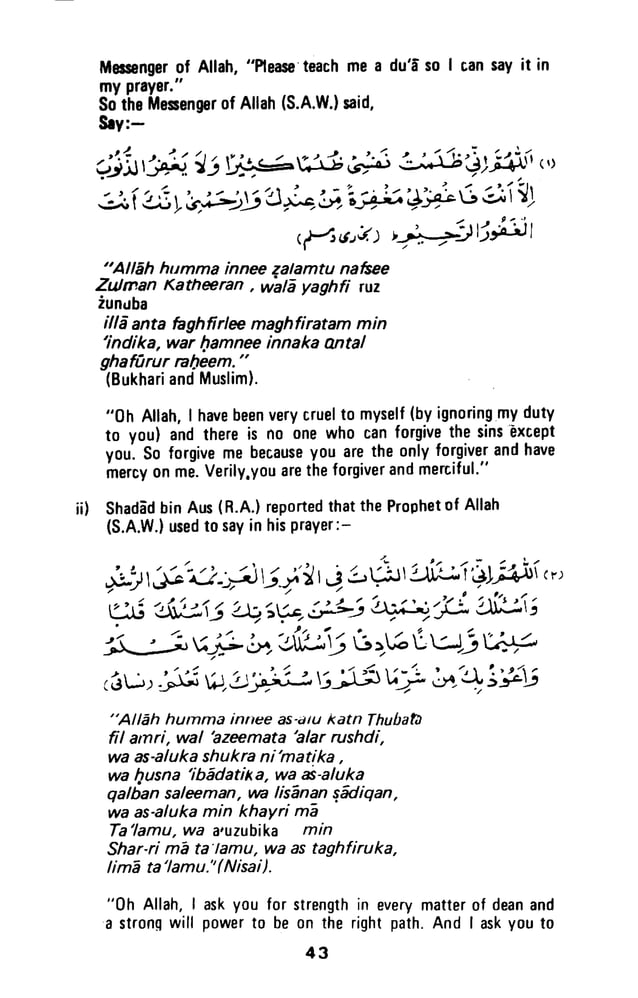 Messenger of Allah, "Please teach me a du'ā so I can say it in
my prayer."
So the Messenger of Allah (S.A.W.) said,
Say:—
(١) اَللّٰهُمَّ اِنِّیْ ظَلَمْتُ نَفْسِیْ ظُلْمًا كَثِیْرًا وَّلَا یَغْفِرُ الذُّنُوْبَ
اِلَّا اَنْتَ فَاغْفِرْلِیْ مَغْفِرَةً مِّنْ عِنْدِكَ وَارْحَمْنِیْ اِنَّكَ اَنْتَ
الْغَفُوْرُ الرَّحِیْمُ (بخاری و مسلم)
"Allāh humma innee ẓalamtu nafsee
Zulman Katheeran , walā yaghfi ruz
żunuba
illā anta faghfirlee maghfiratam min
'indika, war ḥamnee innaka antal
ghafūrur raḥeem."
(Bukhari and Muslim).
"Oh Allah, I have been very cruel to myself (by ignoring my duty
to you) and there is no one who can forgive the sins except
you. So forgive me because you are the only forgiver and have
mercy on me. Verily,you are the forgiver and merciful."
ii) Shadād bin Aus (R.A.) reported that the Prophet of Allah
(S.A.W.) used to say in his prayer:–
(٢) اَللّٰهُمَّ اِنِّیْ اَسْئَلُكَ الثَّبَاتَ فِی الْاَمْرِ وَالْعَزِیْمَةَ عَلَی الرُّشْدِ
وَاَسْئَلُكَ شُكْرَ نِعْمَتِكَ وَحُسْنَ عِبَادَتِكَ وَاَسْئَلُكَ قَلْبًا
سَلِیْمًا وَّلِسَانًا صَادِقًا وَاَسْئَلُكَ مِنْ خَیْرِ مَا تَعْلَمُ
وَاَعُوْذُ بِكَ مِنْ شَرِّ مَا تَعْلَمُ وَاَسْتَغْفِرُكَ لِمَا تَعْلَمُ (نسائی)
"Allāh humma innee as-alu katn Thubata
fil amri, wal 'azeemata 'alar rushdi,
wa as-aluka shukra ni'matika ,
wa ḥusna 'ibādatika, wa as-aluka
qalban saleeman, wa lisānan ṣādiqan,
wa as-aluka min khayri mā
Ta'lamu, wa a'uzubika min
Shar-ri mā ta'lamu, wa as taghfiruka,
limā ta'lamu."(Nisai).
"Oh Allah, I ask you for strength in every matter of dean and
a strong will power to be on the right path. And I ask you to
43